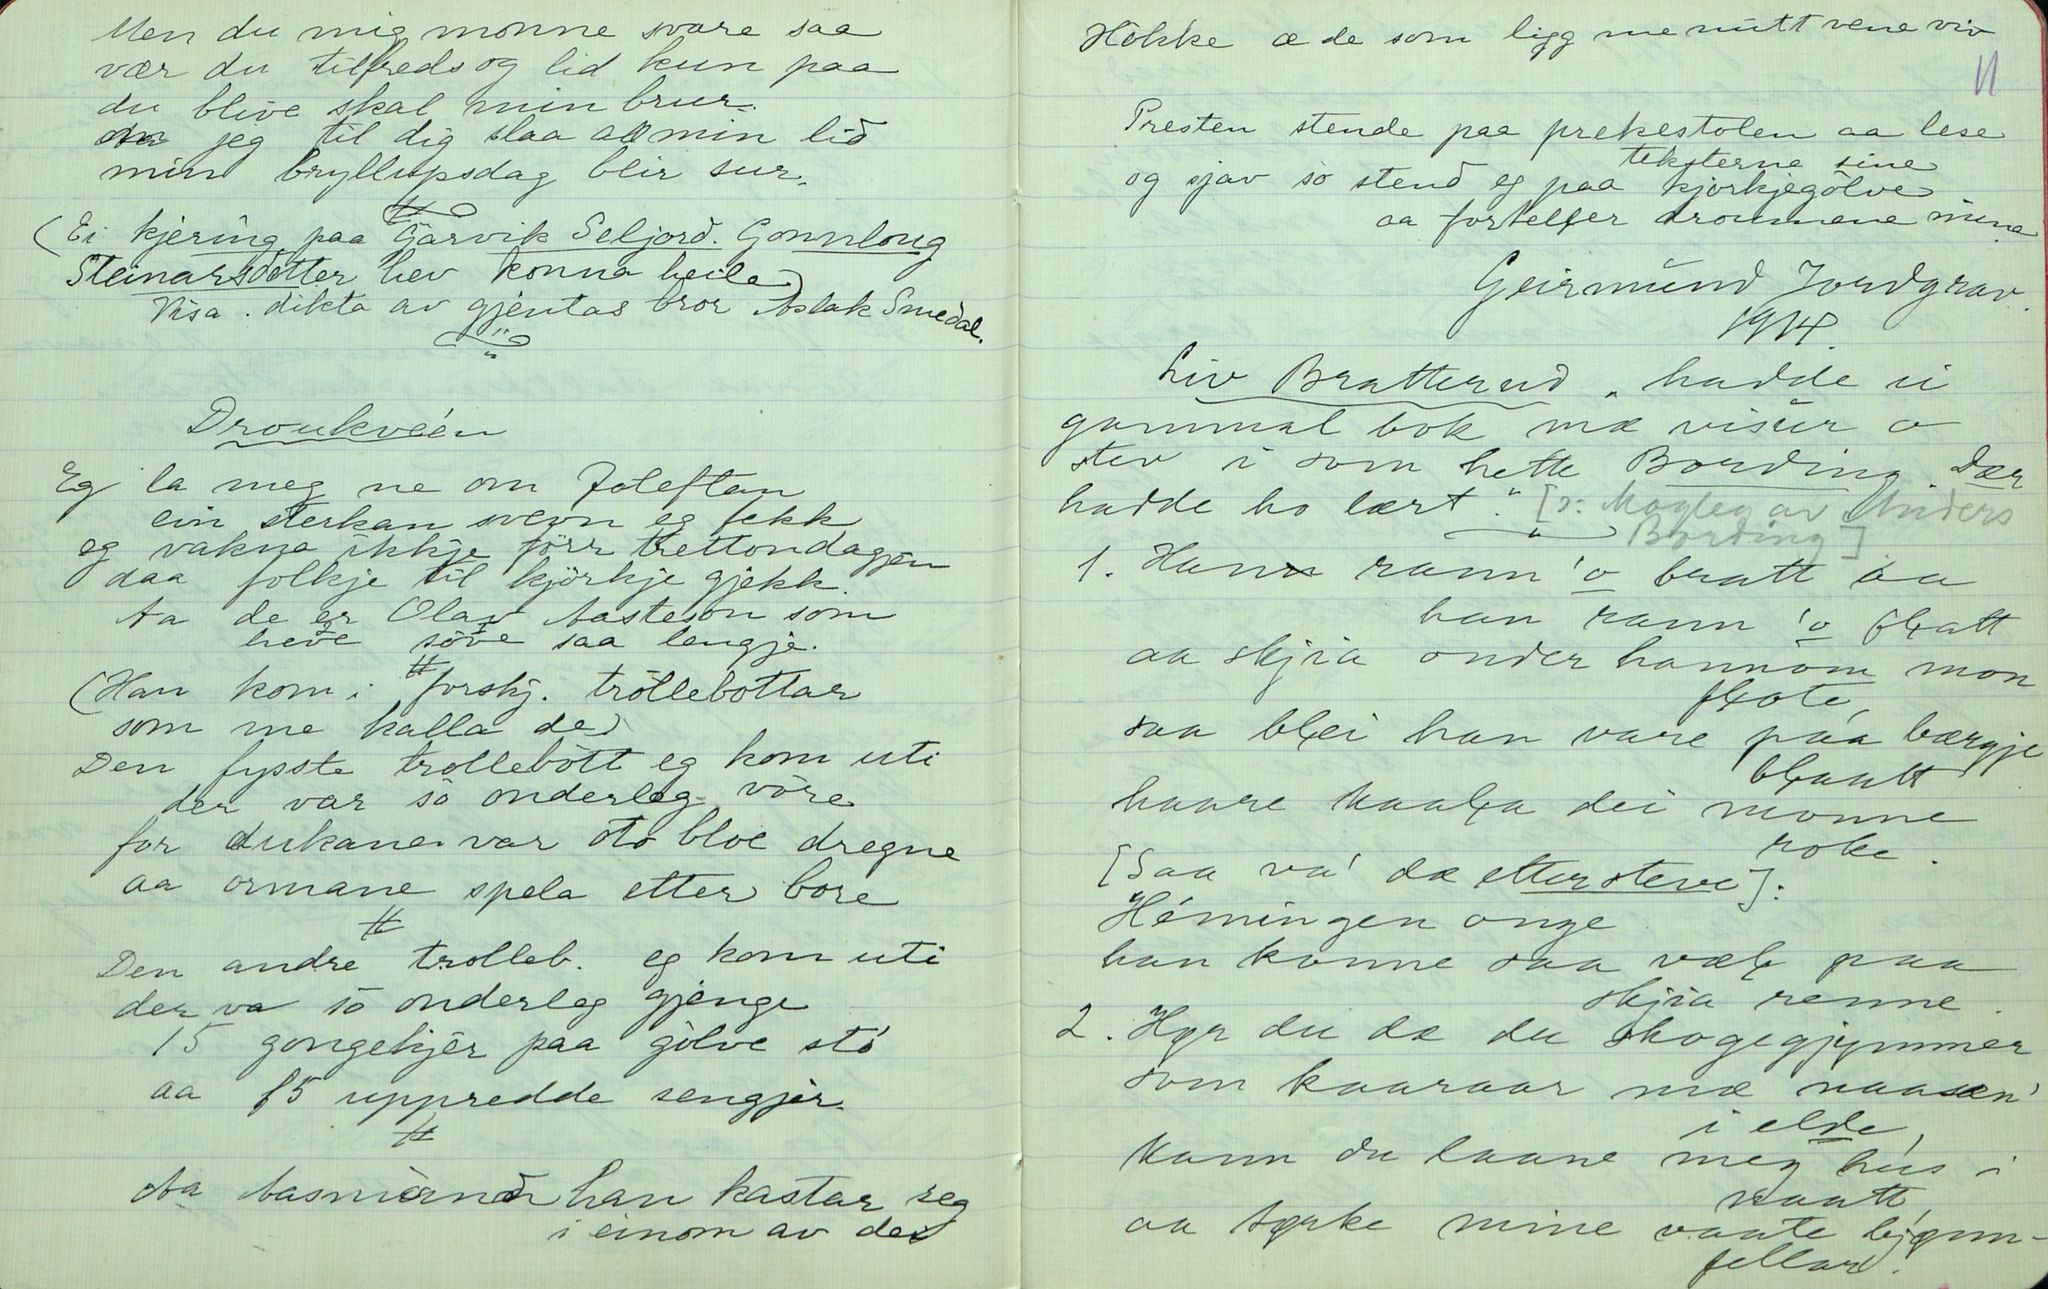 Men du mig monne svare saa
vær du tilfreds og lid kun paa
du blive skal min brur.
jeg til dig slaa al min lid
min bryllupsdag blir sur.
(Ei kjering paa Garvik Seljord. Gonnloug
Steinarsdotter hev konna heile)
Visa dikta av gjentas bror Aslak Smedal.
Droukvéén
Eg la meg ne om Joleftan
ein sterkan svevn eg fekk
eg vakna ikkje förr trettondagjen
daa folkje til kjörkje gjekk.
Aa de er Olav Aasteson som
heve söve saa lengje.
(Han kom i forskj. tröllebottar
som me kalla de)
Den fysste trollebött eg kom uti
der var so onderleg vöre
for dukane var oto bloe dregne
aa ormane spela etter bore
Den andre trolleb. eg kom uti
der va so onderleg gjenge
15 gongekjer paa gölve sto
aa 15 uppredde sengjer.
Aa Aasmund han kastar seg
i einom av dei
Hokke æ de som ligg me mitt vene viv
11
Presten stende paa prekestolen aa lese
teksterne sine
og sjav so stend eg paa kjorkjegölve
aa forteller droumene mine.
Geirmund Jordgrav.
1914.
Liv Bratterud „hadde ei
gammal bok mæ visur o
stev i som hette Bording. Dær
hadde ho lært." [ɔ: Mogleg av Anders
Bording]
1. Hann rann 'o bratt aa
han rann 'o flatt
aa skjia onder hannom mon
flote,
saa blei han vare páa bærgje
blaatt
haare kaala dei monne
roke.
[Saa va' dæ ettersteve]:
Hémingen onge
han konne saa væl paa
skjia renne.
2. Hør du dæ du skogegjymmer
som kaaraar mæ naasæn'
i elde,
kann du laane meg hús i
naatt,
aa tørke mine vaate bjønn-
fellar.